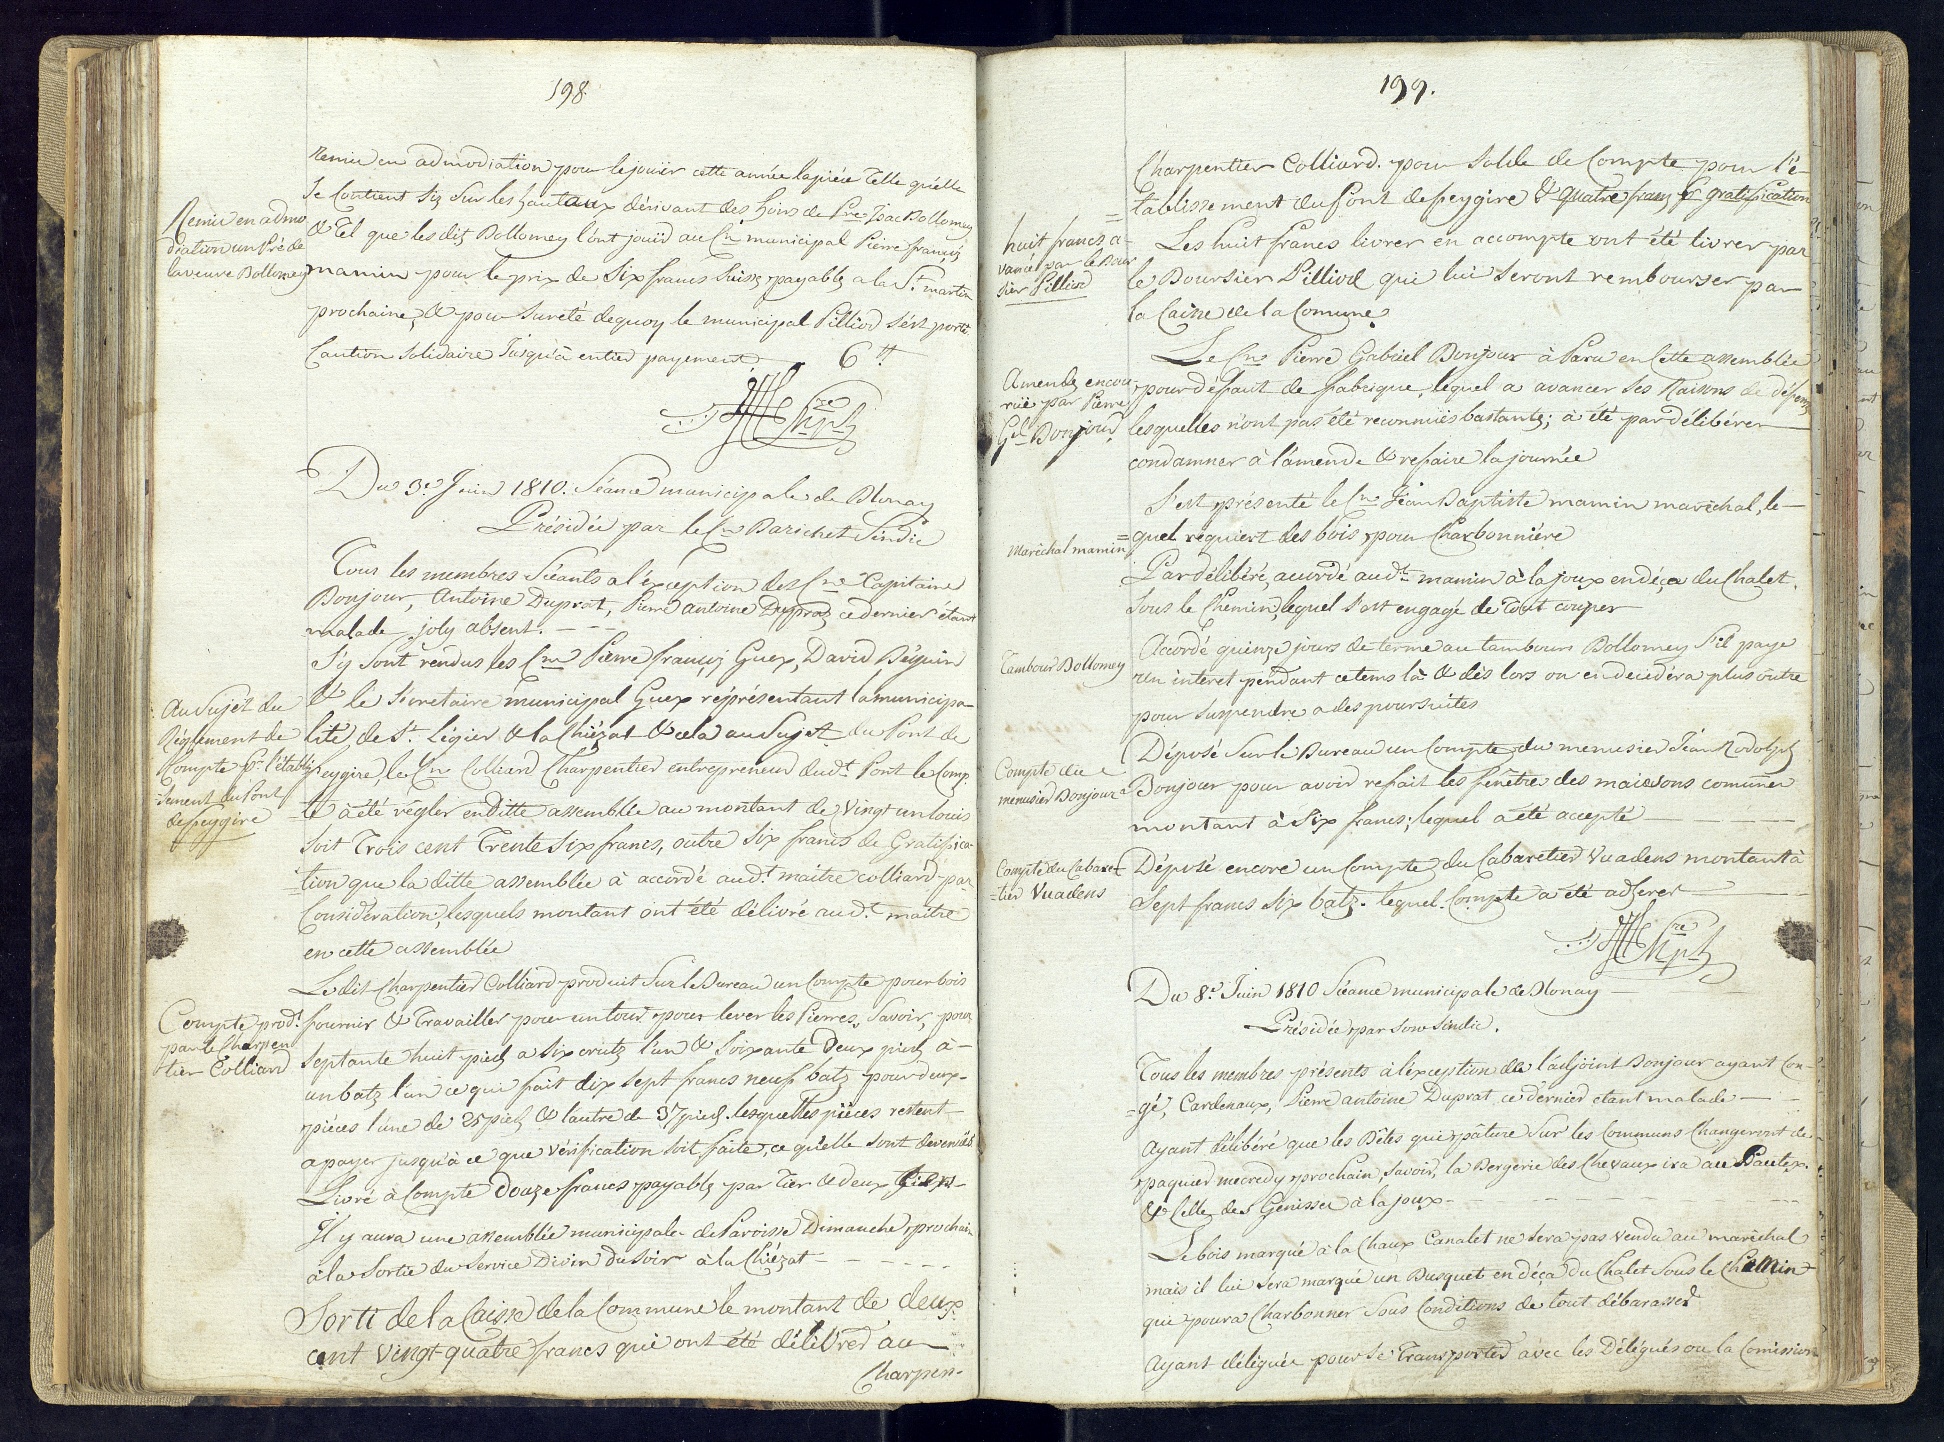 198.
Remie en admodiation pour le jouir cette année la pièce Telle qu'elle
Se Contient Siz Sur les hautaux dérivant des hoirs de Pre Isac Dollomey
& Tel que les diz Dollomey l'ont jouïd au Cn municipal Pierre françiz
mamin pour le prix de Six francs Suisse payablz a la St martin
prochaine, & pour sureté dequoy le municipal Pilliod s'ést porté
Caution Solidaire Jusqu'à entier payement 6 tt
Remie en admo
diation un Pré de
la veuve Dollomey
Du 3e Juin 1810. Séance municipale de Blonay
Présidée par le Cn Barichet Sindic
Tous les membres Séants a l'éxception des Cns Capitaine
Bonjour, Antoine Duprat, Pierre antoine Dupraz ce dernier étant
malade joly absent. — — —
S'y Sont rendus les Cns Pierre françiz Guex, David Béguin
& le Sécretaire municipal Guex représentant la municipa-
lité de St Légier & la Chiézat & cela au Sujet du Pont de
feygire, le Cn Colliard Charpentier entrepreneur dudt Pont le Comp
te à été régler en ditte assemblée au montant de Vingt un louis
Soit Trois cent Trente Six francs, outre Six francs de Gratifica-
=tion que la ditte assemblée à accordé aud.t maitre colliard par
Considération, lesquels montant ont été délivré aud.t maître
en cette assemblée
Au Sujét du
Réglement de
Compte Pr l'établis
sement du Pont
de feygire
Le dit Charpentier Colliard produit Sur le Bureau un Compte pour bois
fournir & Travailler pour un tour pour lever les Pierres, Savoir, pour
Septante huit piedz a Six crutz l'un & Soixante deux piedz à-
un batz l'un ce qui fait dix Sept francs neuf batz pour deux-
pièces l'une de 25 piedz & l'autre de 37 piedz. lesquelles pièces restent-
a payer jusqu'à ce que vérification soit faite, ce qu'elle sont devenües
Livré à Compte douze francs payablz par Tier & deux Tiers-
Compte prodt
par le Charpen
tier Colliard
Il y aura une assemblée municipale de Paroisse Dimanche prochain
à la Sortie du Service Divin du Soir à la Chiézat- - - - - - -
Sorti de la Caisse de la Commune le montant de deux
cent vingt quatre francs qui ont été délibrer au
Charpen-
199.
Charpentier Colliard. pour Solde de Compte pour l'é-
=tablissement du Pont de feygire & quatre franz pr gratification
Les huit francs livrer en accompte ont été livrer par
le Boursier Pilliod qui lui seront rembourser par
la Caisse de la Comune
huit francs a-
vancé par le Bour
sier Pilliod
Le Cn Pierre Gabriel Bonjour à Paru en Cette assemblée
pour défaut de fabrique, lequel a avancer Ses Raisons de défense
lesquelles n'ont pas été reconnuis bastantz; à été par délibérer
condamner à l'amende & refaire la journée
Amendz encou
rüe par Pierre
Gel Bonjour
S'est présenté le Cn Jéan Baptiste mamin maréchal, le-
=quel requiert des bois pour Charbonnière
Par délibéré, acordé audt mamin à la joux en déça du Chalet,
Sous le Chemin, lequel s'est engagé de Tout couper
Maréchal mamin
Acordé quinze jours de terme au tambour Dollomey S'il paye
un interet pendant cetems là & dès lors on en decidéra plus outre
pour Suspendre a des poursuites
Tambour Dollomey
Déposé Sur le Bureau un Compte du menusier Jéan Rodolph
Bonjour pour avoir refait les fenêtre des maissons comunes
montant à Six francs; lequel a été accepté
Compte du
menusier Bonjour
Déposé encore un Compte du Cabaretier Vuadens montant à
Sept francs Six batz. lequel Compte a été adherer
Compte du Cabaret
=tier Vuadens
Du 8e Juin 1810 Séance municipale de Blonay
Présidée par Son Sindic.
Tous les membres présents à l'éxception de l'adjoint Bonjour ayant Con-
=gé, Cardenaux, Pierre antoine Duprat, ce dérnier etant malade
Ayant délibéré que les Bêtes qui pâture Sur les Communs Changeront de
paquier mecredy prochain, Savoir, la Bergerie des Chevaux ira au Pautex
& Celle des Génisses à la joux - - - - - -
Le bois marqué à la Chaux Canalet ne sera pas vendu au maréchal
mais il lui Sera marqué un Busquet en déça du Chalet Sous le Chemin
qui poura Charbonner Sous Conditions de tout débarasser
Ayant déléguée pour se Transporter avec les Délégués ou la Comission